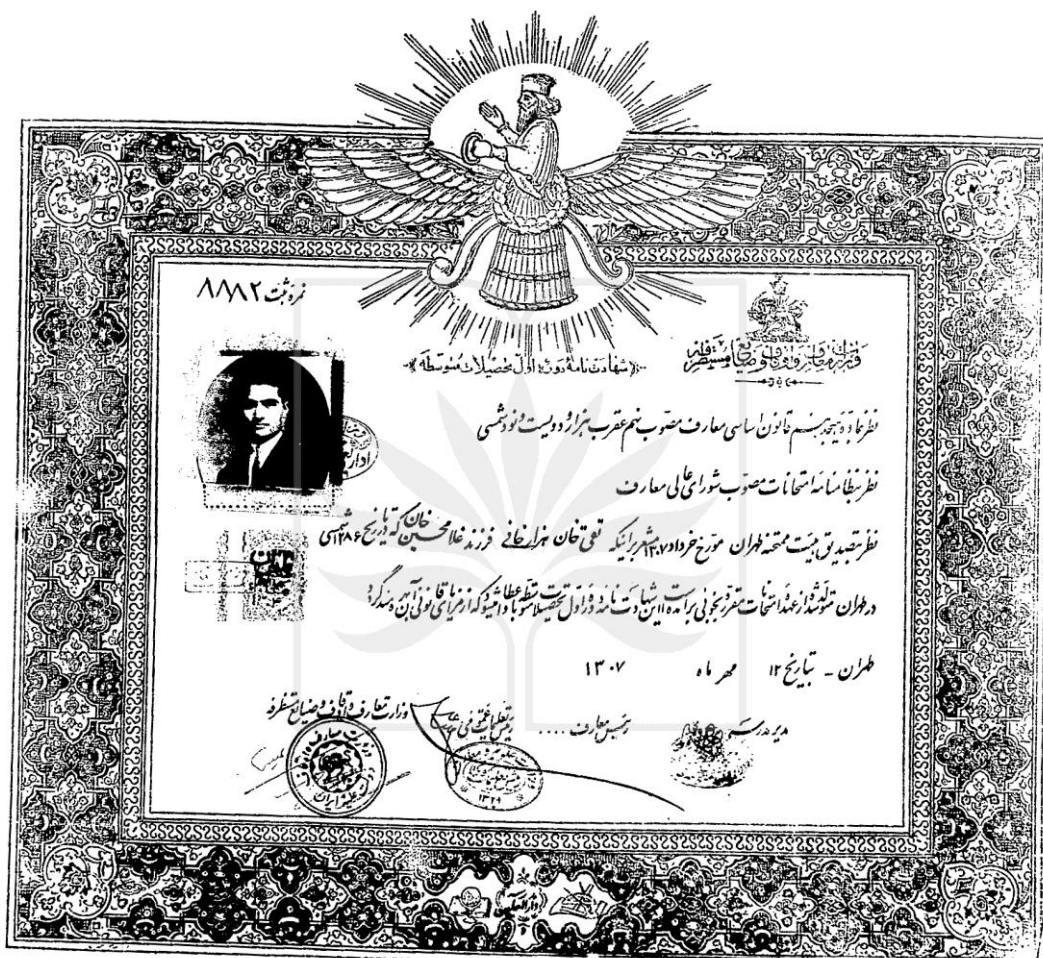 نمره ثبت ۸۸۸۲
وزارت معارف و اوقاف و صنایع مستظرفه
شهادت نامهٔ دورهٔ اول تحصیلات متوسطه
نظر بمادهٔ هیجدهم قانون اساسی معارف مصوب نهم عقرب هزار و دویست و نود شمسی
نظر بنظامنامه امتحانات مصوب شورای عالی معارف
نظر بتصدیق هیئت ممتحنه طهران مورخ خرداد ۱۳۰۷ مشعر براینکه تقی خان هزارخانی فرزند غلامحسین خان که بتاریخ ۱۲۸۶ شمسی
در طهران متولد شده از عهده امتحانات مقرره بخوبی برآمده است این شهادت نامه دوره اول تحصیلات متوسطه باو اعطا میشود که از مزایای قانونی آن بهره مند گردد
طهران - بتاریخ ۱۲ مهر ماه ۱۳۰۷
مدیر مدرسه
رئیس معارف ....
رئیس تعلیمات عمومی
وزارت معارف و اوقاف و صنایع مستظرفه
۱۳۲۹